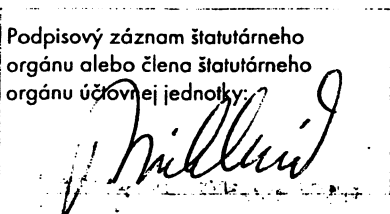 Podpisový záznam štatutárneho
orgánu alebo člena štatutárneho
orgánu účtovnej jednotky: